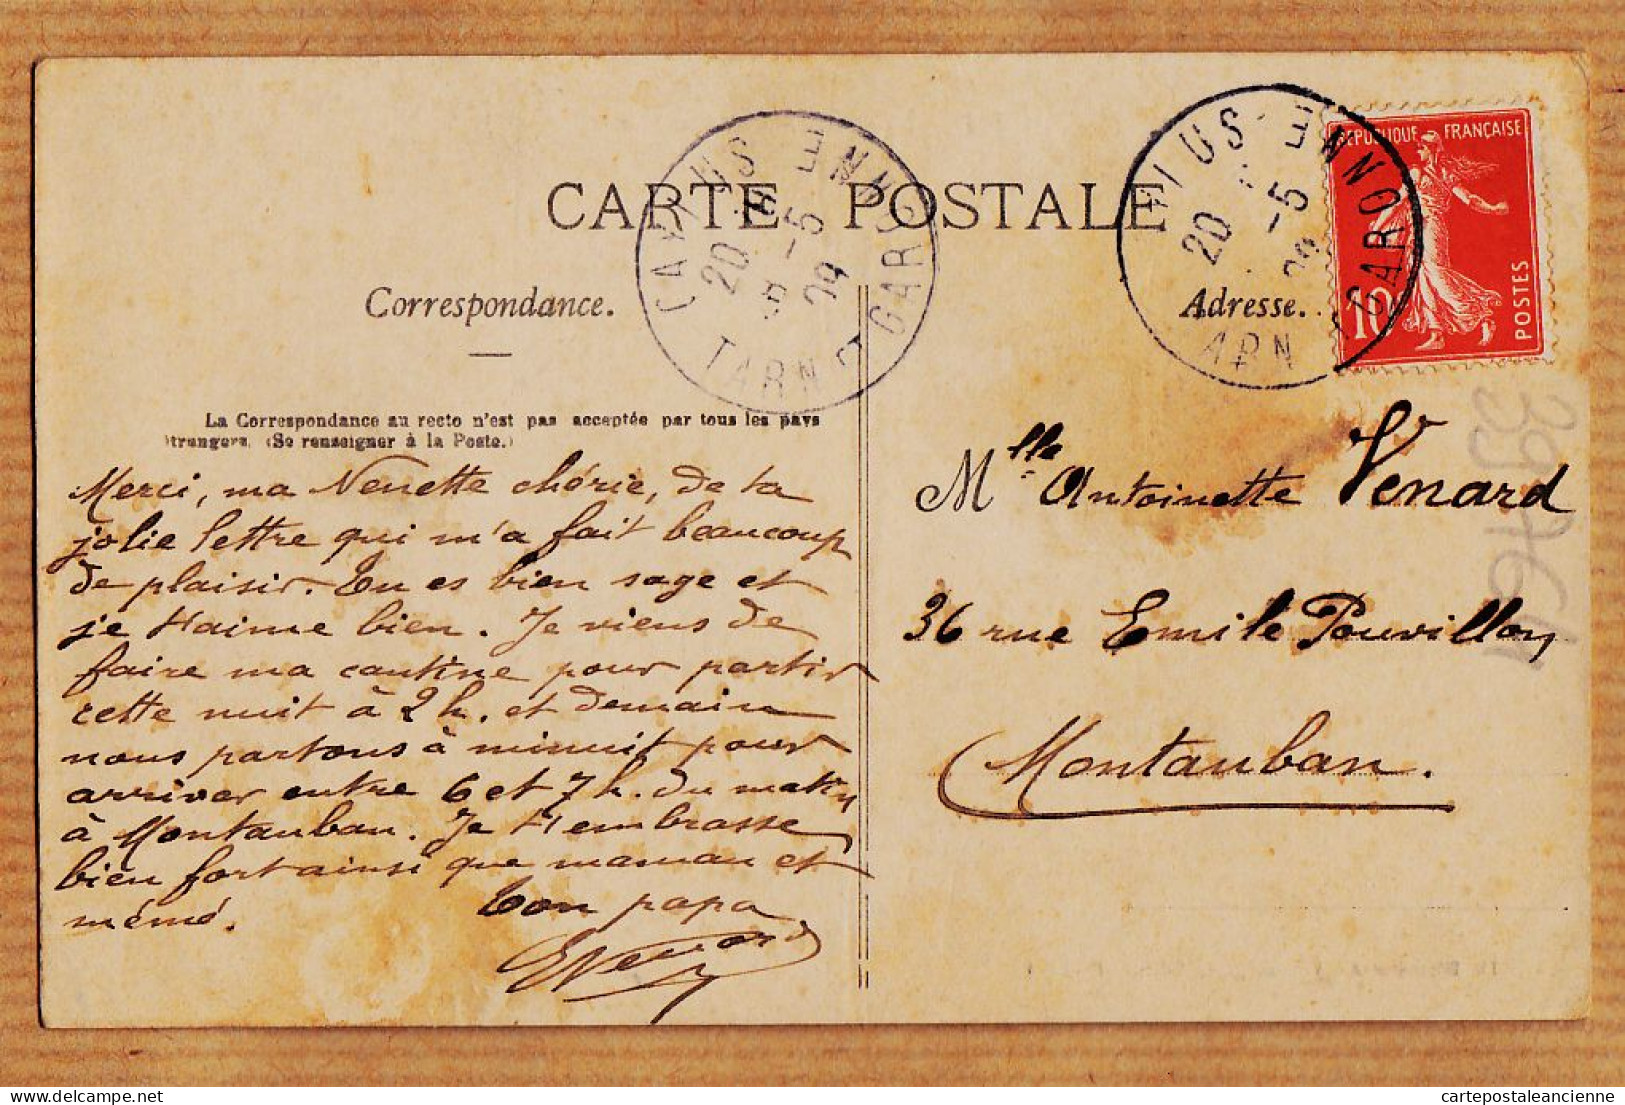 CARTE POSTALE
Correspondance.
La Correspondance au recto n'est pas acceptée par tous les pays
étrangers. (Se renseigner à la Poste.)
Merci, ma Nenette chérie, de ta
jolie lettre qui m'a fait beaucoup
de plaisir. Tu es bien sage et
je t'aime bien. Je viens de
faire ma cantine pour partir
cette nuit à 2 h. et demain
nous partons à minuit pour
arriver entre 6 et 7 h. du matin
à Montauban. Je t'embrasse
bien fort ainsi que maman et
mémé.
Ton papa
EVenard
CAYLUS
20 -5
09
TARN ET GARONNE
YLUS
20 -5
09
TARN ET GARONNE
REPUBLIQUE FRANÇAISE
10
POSTES
Adresse.
Mlle Antoinette Venard
36 rue Emile Pouvillon
Montauban.
cartepostaleancienne